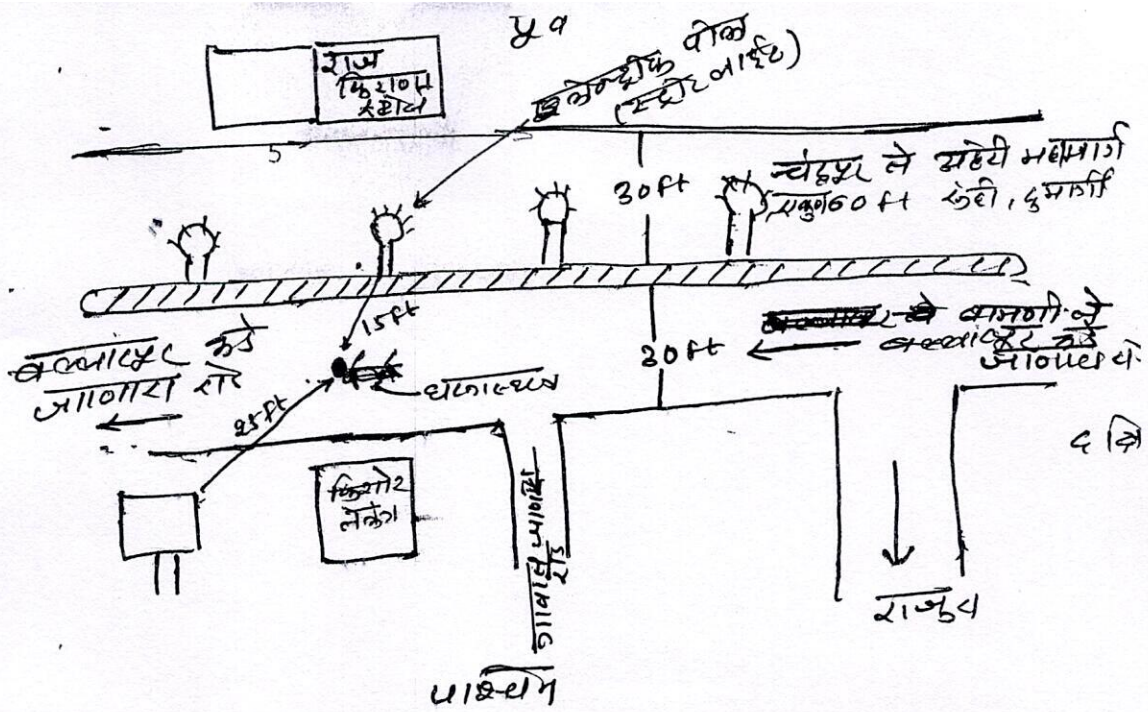 पूर्व
राज
किराणा
स्टोर्स
इलेक्ट्रीक पोल
(स्ट्रीट लाईट)
5
30 ft
चंद्रपूर ते अहेरी महामार्ग
एकुण 60 ft रुंदी, दुमार्गी
15 ft
30 ft
बामणी ते
बल्लारपूर कडे
जाणारा रो
बल्लारपूर कडे
जाणारा रोड
घटनास्थळ
25 ft
दक्षि
किशोर
गावात जाणारा
रोड
राजुरा
पश्चिम